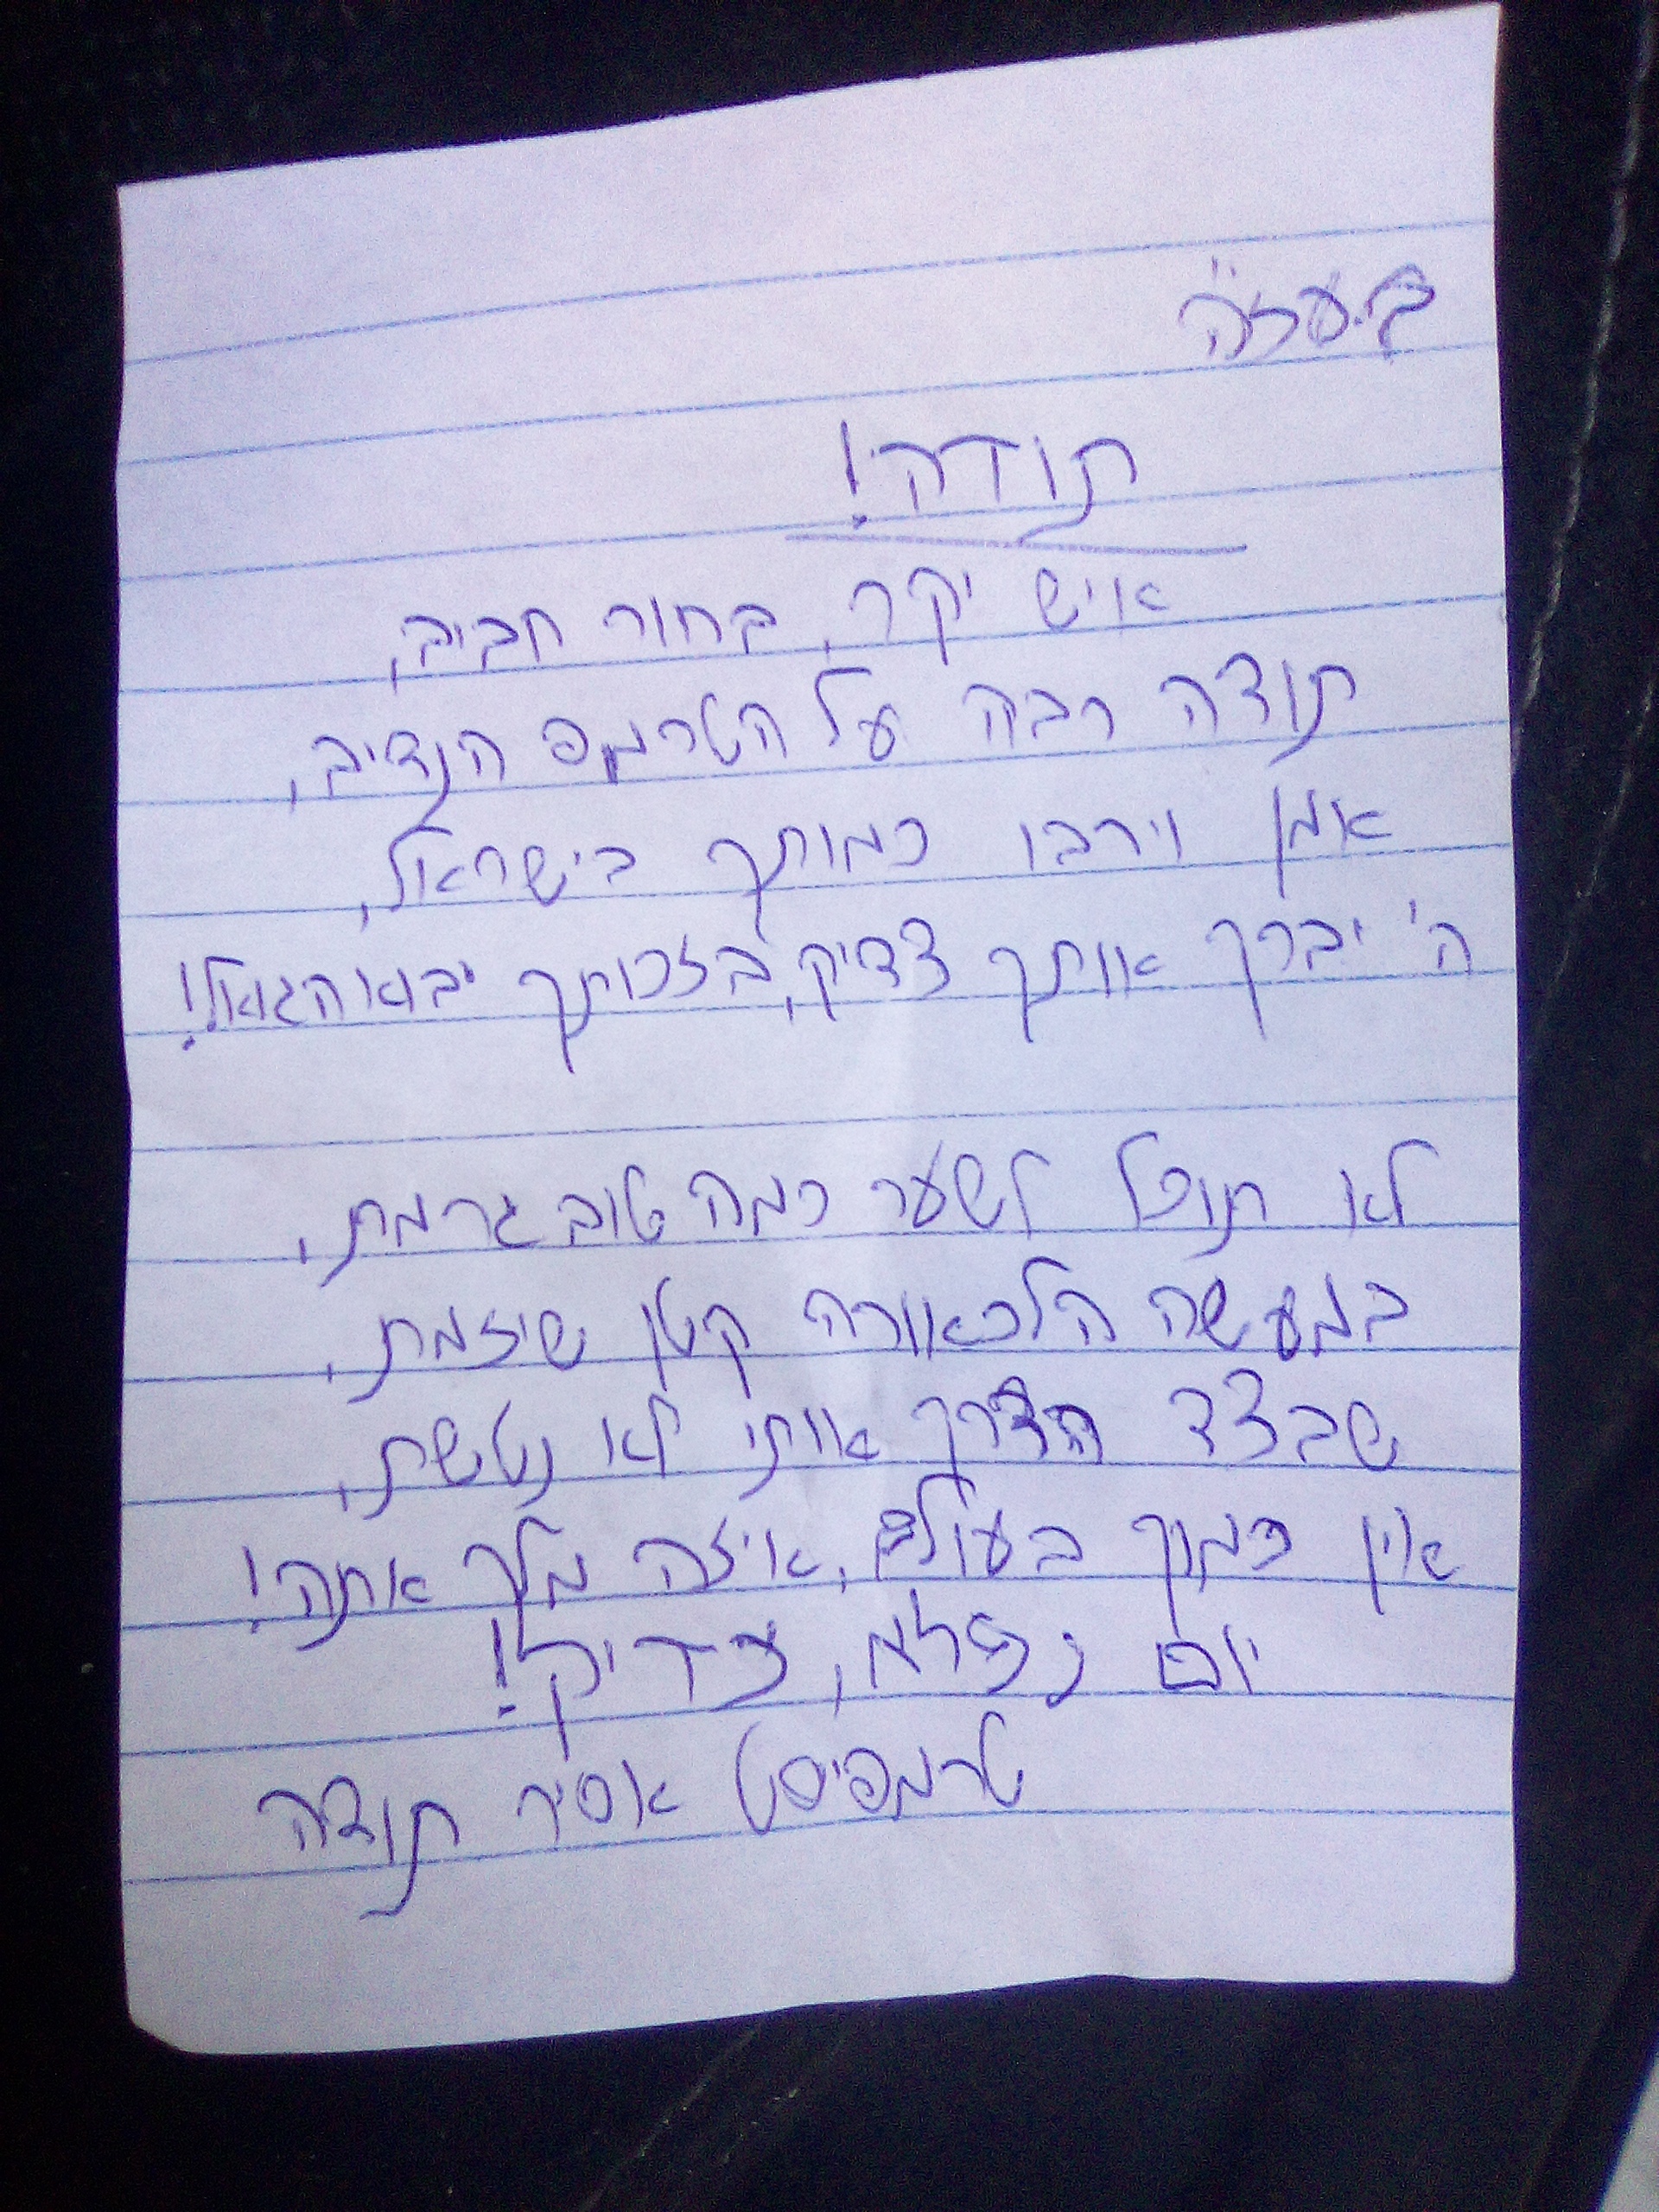 בעזה"י
תודה!
איש יקר, בחור חביב,
תודה רבה על הטרמפ הנדיב,
אמן וירבו כמותך בישראל,
ה' יברך אותך צדיק, בזכותך יבוא הגואל!
לא תוכל לשער כמה טוב גרמת,
במעשה הלכאורה קטן שיזמת,
שבצד הדרך אותי לא נטשת,
אין כמוך בעולם, איזה מלך אתה!
יום נפלא, צדיק!
טרמפיסט אסיר תודה